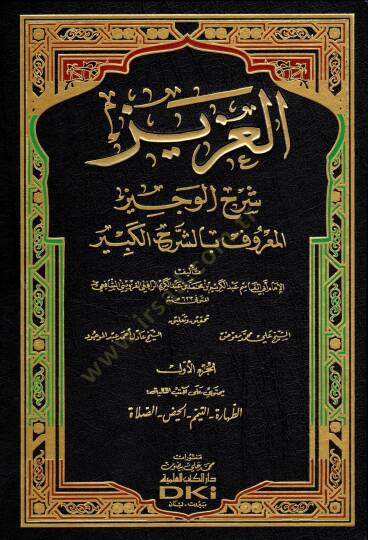 العزيز
شرح الوجيز
المعروف بالشرح الكبير
تأليف
الإمام أبي القاسم عبد الكريم بن محمد بن عبد الكريم الرافعي القزويني الشافعي
المتوفى ٦٢٣ هـ
تحقيق وتعليق
الشيخ علي محمد معوض الشيخ عادل أحمد عبد الموجود
الجزء الأول
يحتوي على الكتب التالية:
الطهارة - التيمم - الحيض - الصلاة
منشورات
محمد علي بيضون
دار الكتب العلمية
DKi
بيروت - لبنان